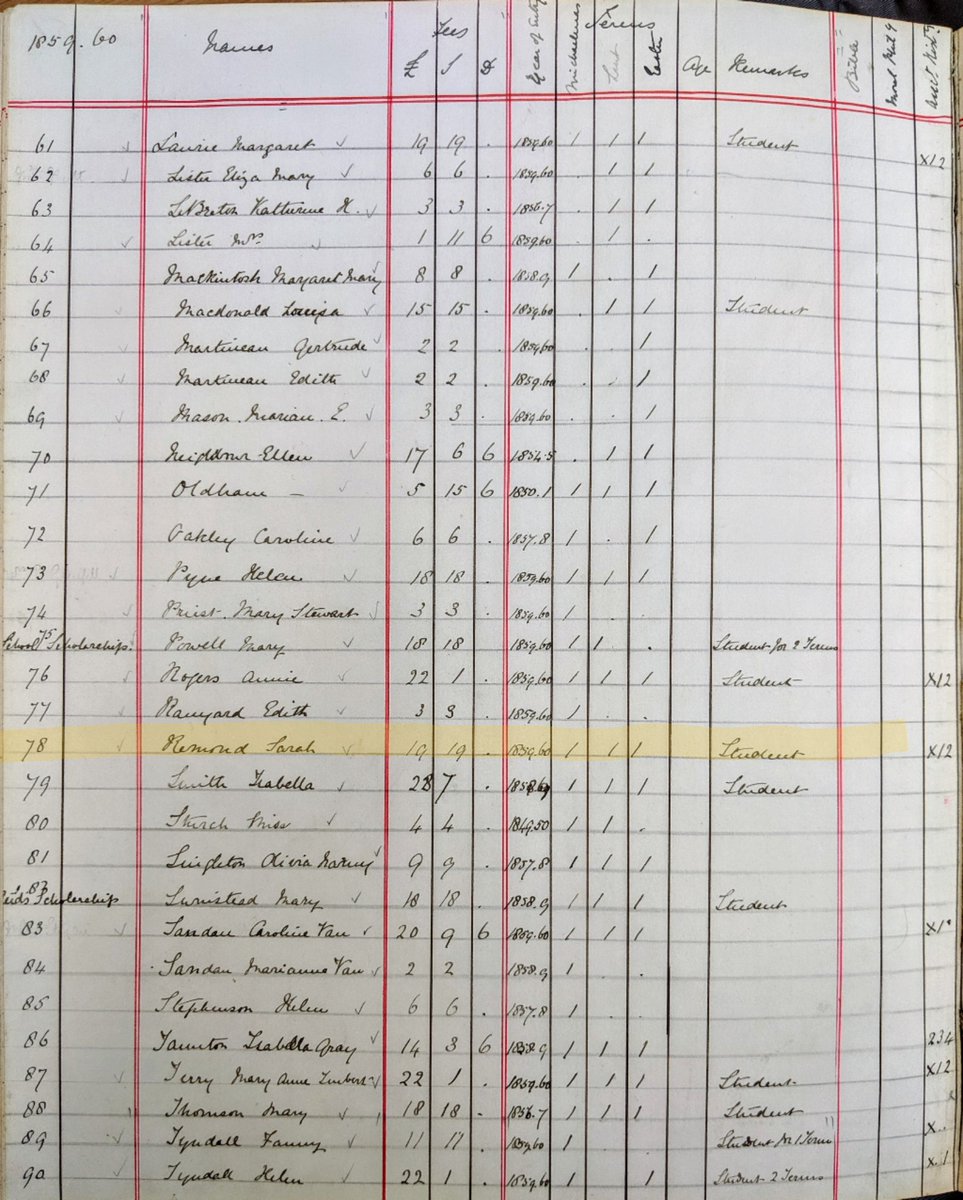 1859.60 Names Fees £ S D Year of Entry Michaelmas Terms Lent Easter Age Remarks Bible
61 Laurie Margaret 19 19 . 1859.60 1 1 1 Student X12
62 Lister Eliza Mary 6 6 . 1859.60 . 1 1
63 LeBreton Katherine H. 3 3 . 1856.7 . 1 1
64 Lister Mrs 1 11 6 1859.60 . 1 .
65 Mackintosh Margaret Mary 8 8 . 1858.9 1 . 1
66 Macdonald Louisa 15 15 . 1859.60 . 1 1 Student
67 Martineau Gertrude 2 2 . 1859.60 . . 1
68 Martineau Edith 2 2 . 1859.60 . . 1
69 Mason. Marian. E. 3 3 . 1859.60 . . 1
70 Ellen 17 6 6 1854.5 . 1 1
71 Oldham – 5 15 6 1850.1 1 1 1
72 Oakley Caroline 6 6 . 1857.8 1 . 1
73 Pyne Helen 18 18 . 1859.60 1 1 1
74 Priest. Mary Stewart 3 3 . 1859.60 1
75 School Scholarships. Powell Mary 18 18 1859.60 1 1 . Student for 2 Terms
76 Rogers Annie 22 1 . 1859.60 1 1 1 Student X12
77 Ranyard Edith 3 3 . 1859.60 1 . .
78 Remond Sarah 19 19 . 1859.60 1 1 1 Student X12
79 Smith Isabella 28 7 . 1 1 1 Student
80 Sturch Miss 4 4 . 1849.50 1 1 .
81 Singleton Olivia 9 9 . 1857.8 1 1 1
82 Scholarship Mary 18 18 . 1858.9 1 1 1 Student
83 Sandau Caroline Van 20 9 6 1859.60 1 1 1
84 Sandau Marianne Van 2 2 1858.9 1 .
85 Stephenson Helen 6 6 . 1857.8 1 .
86 Isabella Gray 14 3 6 1858.9 1 1 1 234
87 Terry Mary Anne 22 1 . 1859.60 1 1 1 Student X12
88 Thomson Mary 18 18 . 1856.7 1 1 1 Student
89 Tyndall Fanny 11 11 . 1859.60 1 Student for 1 Term
90 Tyndall Helen 22 1 . 1859.60 1 1 Student 2 Terms